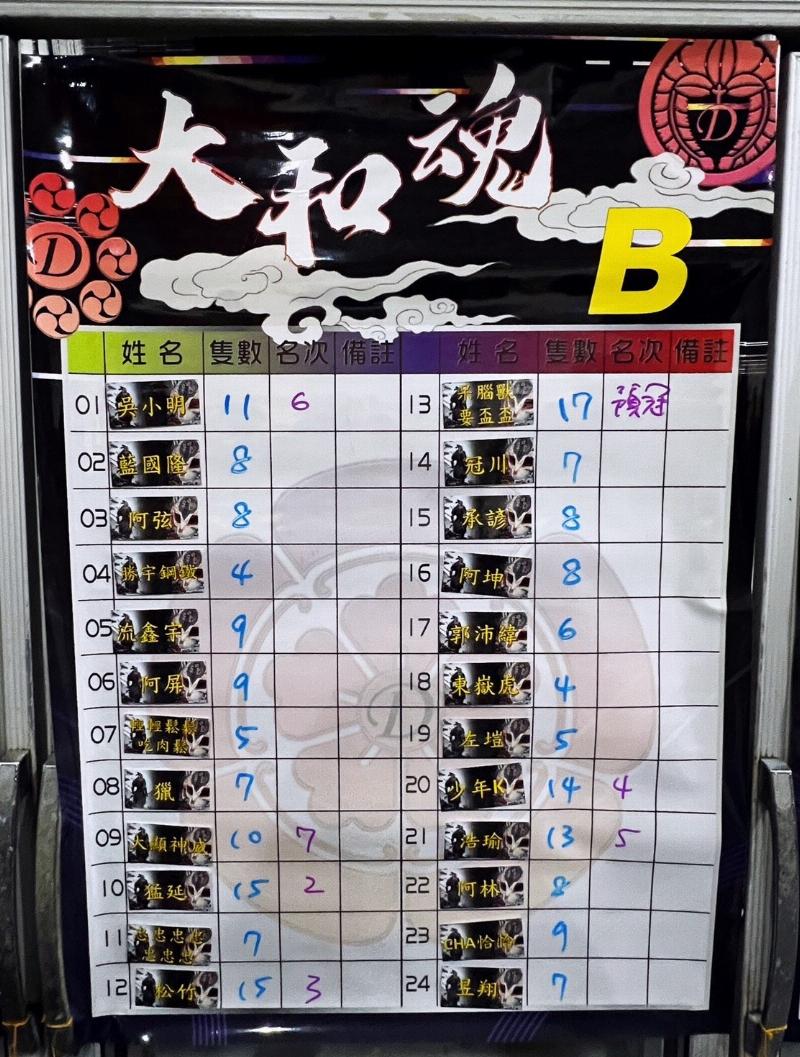 大和魂
D
D
B
姓名 隻數 名次 備註 姓名 隻數 名次 備註
01 吳小明 11 6 13 呆腦獸 要盃盃 17 預冠
02 藍國隆 8 14 冠川 7
03 阿弦 8 15 承諺 8
04 勝宇鋼鐵 4 16 阿坤 8
05 流鑫宇 9 17 郭沛緯 6
06 阿屏 9 18 東嶽虎 4
07 輕輕鬆鬆 吃肉鬆 5 19 左塏 5
08 獵 7 20 少年K 14 4
09 大顯神威 10 7 21 浩瑜 13 5
10 猛延 15 2 22 阿林 8
11 忠忠忠忠 忠忠忠 7 23 CHA恰 9
12 松竹 15 3 24 昱翔 7
D